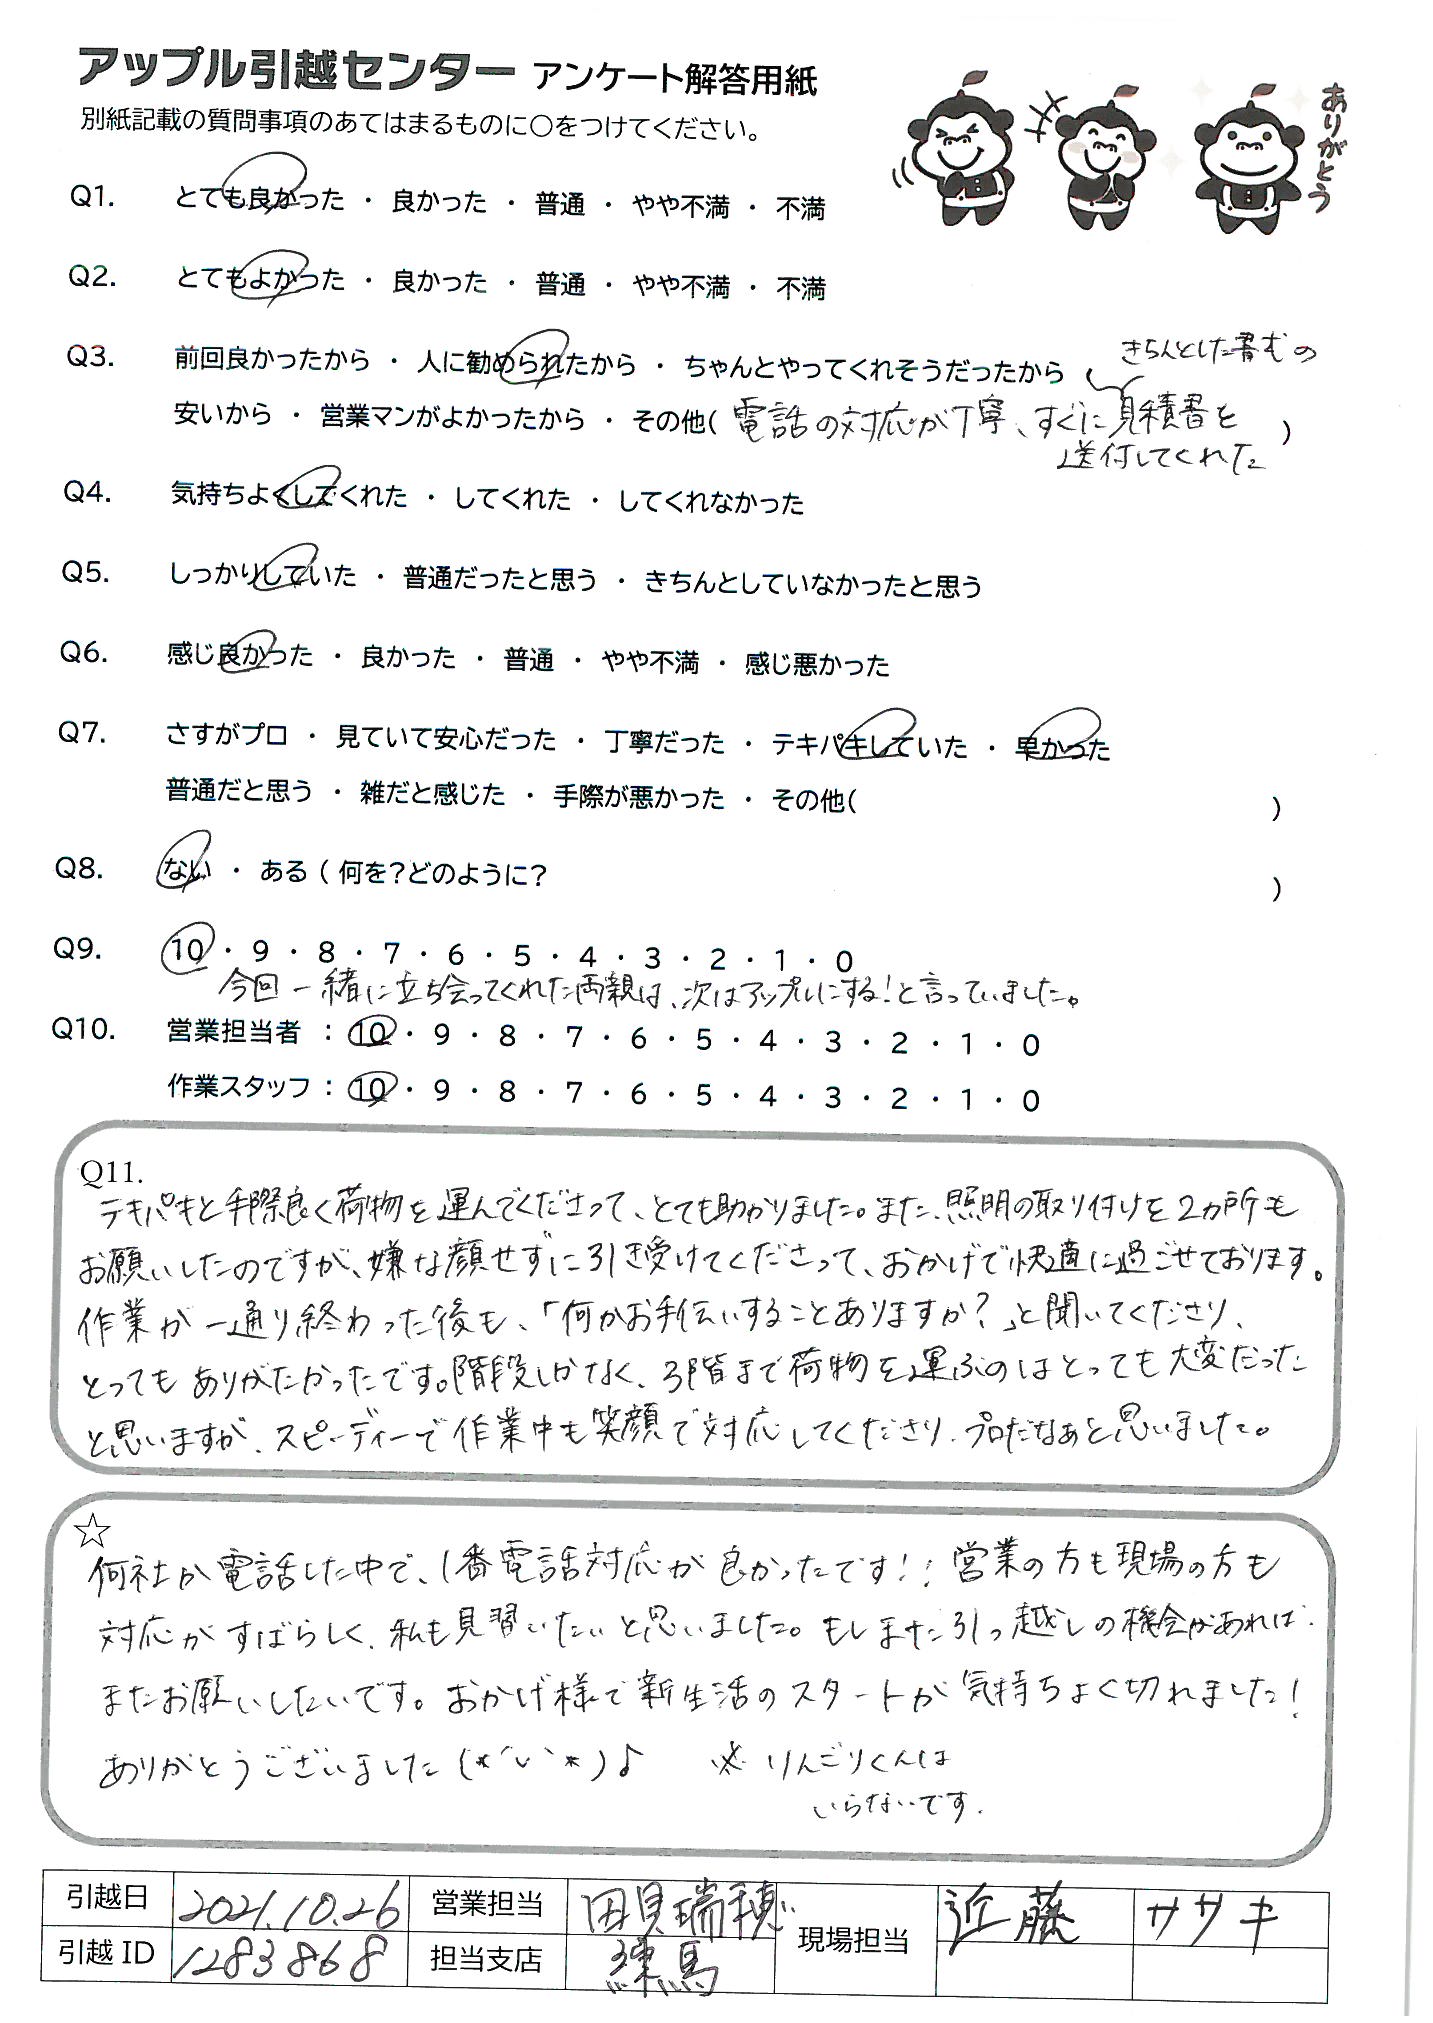 アップル引越センター アンケート解答用紙
別紙記載の質問事項のあてはまるものに○をつけてください。
ありがとう
Q1. とても良かった ・ 良かった ・ 普通 ・ やや不満 ・ 不満
Q2. とてもよかった ・ 良かった ・ 普通 ・ やや不満 ・ 不満
Q3. 前回良かったから ・ 人に勧められたから ・ ちゃんとやってくれそうだったから
きちんとした書むの
安いから ・ 営業マンがよかったから ・ その他( 電話の対応が丁寧、すぐに見積書を )
送付してくれた
Q4. 気持ちよくしてくれた ・ してくれた ・ してくれなかった
Q5. しっかりしていた ・ 普通だったと思う ・ きちんとしていなかったと思う
Q6. 感じ良かった ・ 良かった ・ 普通 ・ やや不満 ・ 感じ悪かった
Q7. さすがプロ ・ 見ていて安心だった ・ 丁寧だった ・ テキパキしていた ・ 早かった
普通だと思う ・ 雑だと感じた ・ 手際が悪かった ・ その他( )
Q8. ない ・ ある ( 何を?どのように? )
Q9. 10 ・ 9 ・ 8 ・ 7 ・ 6 ・ 5 ・ 4 ・ 3 ・ 2 ・ 1 ・ 0
今回一緒に立ち会ってくれた両親は、次はアップルにする!と言っていました。
Q10. 営業担当者 : 10 ・ 9 ・ 8 ・ 7 ・ 6 ・ 5 ・ 4 ・ 3 ・ 2 ・ 1 ・ 0
作業スタッフ : 10 ・ 9 ・ 8 ・ 7 ・ 6 ・ 5 ・ 4 ・ 3 ・ 2 ・ 1 ・ 0
Q11.
テキパキと手際良く荷物を運んでくださって、とても助かりました。また、照明の取り付けを2カ所も
お願いしたのですが、嫌な顔せずに引き受けてくださって、おかげで快適に過ごせております。
作業が一通り終わった後も、「何かお手伝いすることありますか?」と聞いてくださり、
とってもありがたかったです。階段しかなく、3階まで荷物を運ぶのはとっても大変だった
と思いますが、スピーディーで作業中も笑顔で対応してくださり、プロだなぁと思いました。
☆
何社か電話した中で、1番電話対応が良かったです!! 営業の方も現場の方も
対応がすばらしく、私も見習いたいと思いました。もしまた引っ越しの機会があれば、
またお願いしたいです。おかげ様で新生活のスタートが気持ちよく切れました!
ありがとうございました (*´`*)♪ ※りんごりくんは
いらないです.
引越日 2021.10.26 営業担当 田貝瑞穂 現場担当 近藤 ササキ
引越 ID 1283868 担当支店 練馬